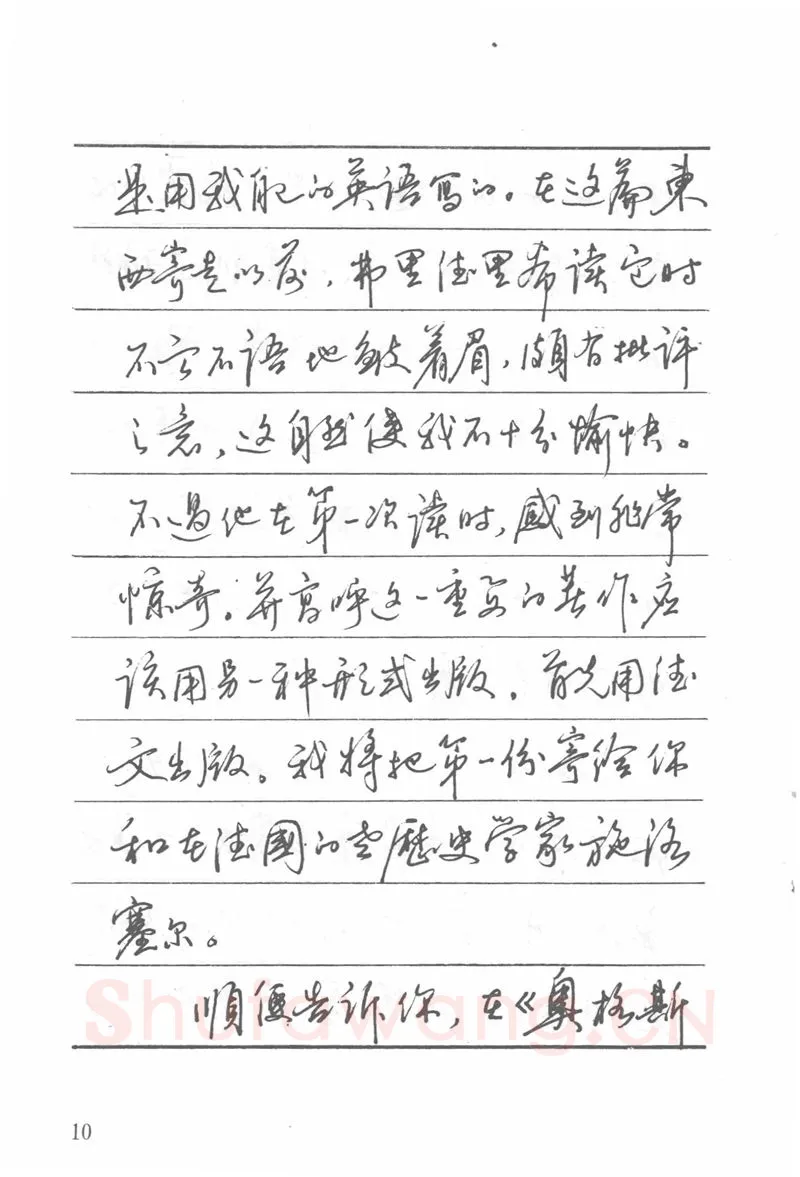 是用我自己的英语写的。在这篇東
西寄走以前，弗里德里希读它时
不言不语地皱着眉，颇有批评
之意，这自然使我不十分愉快。
不過他在第一次读时，感到非常
惊奇。并高呼这一重要的著作应
该用另一种形式出版，首先用德
文出版。我将把第一份寄给你
和在德國的老歷史学家施洛
塞尔。
順便告訴你，在《奥格斯
Shufawang.CN
10